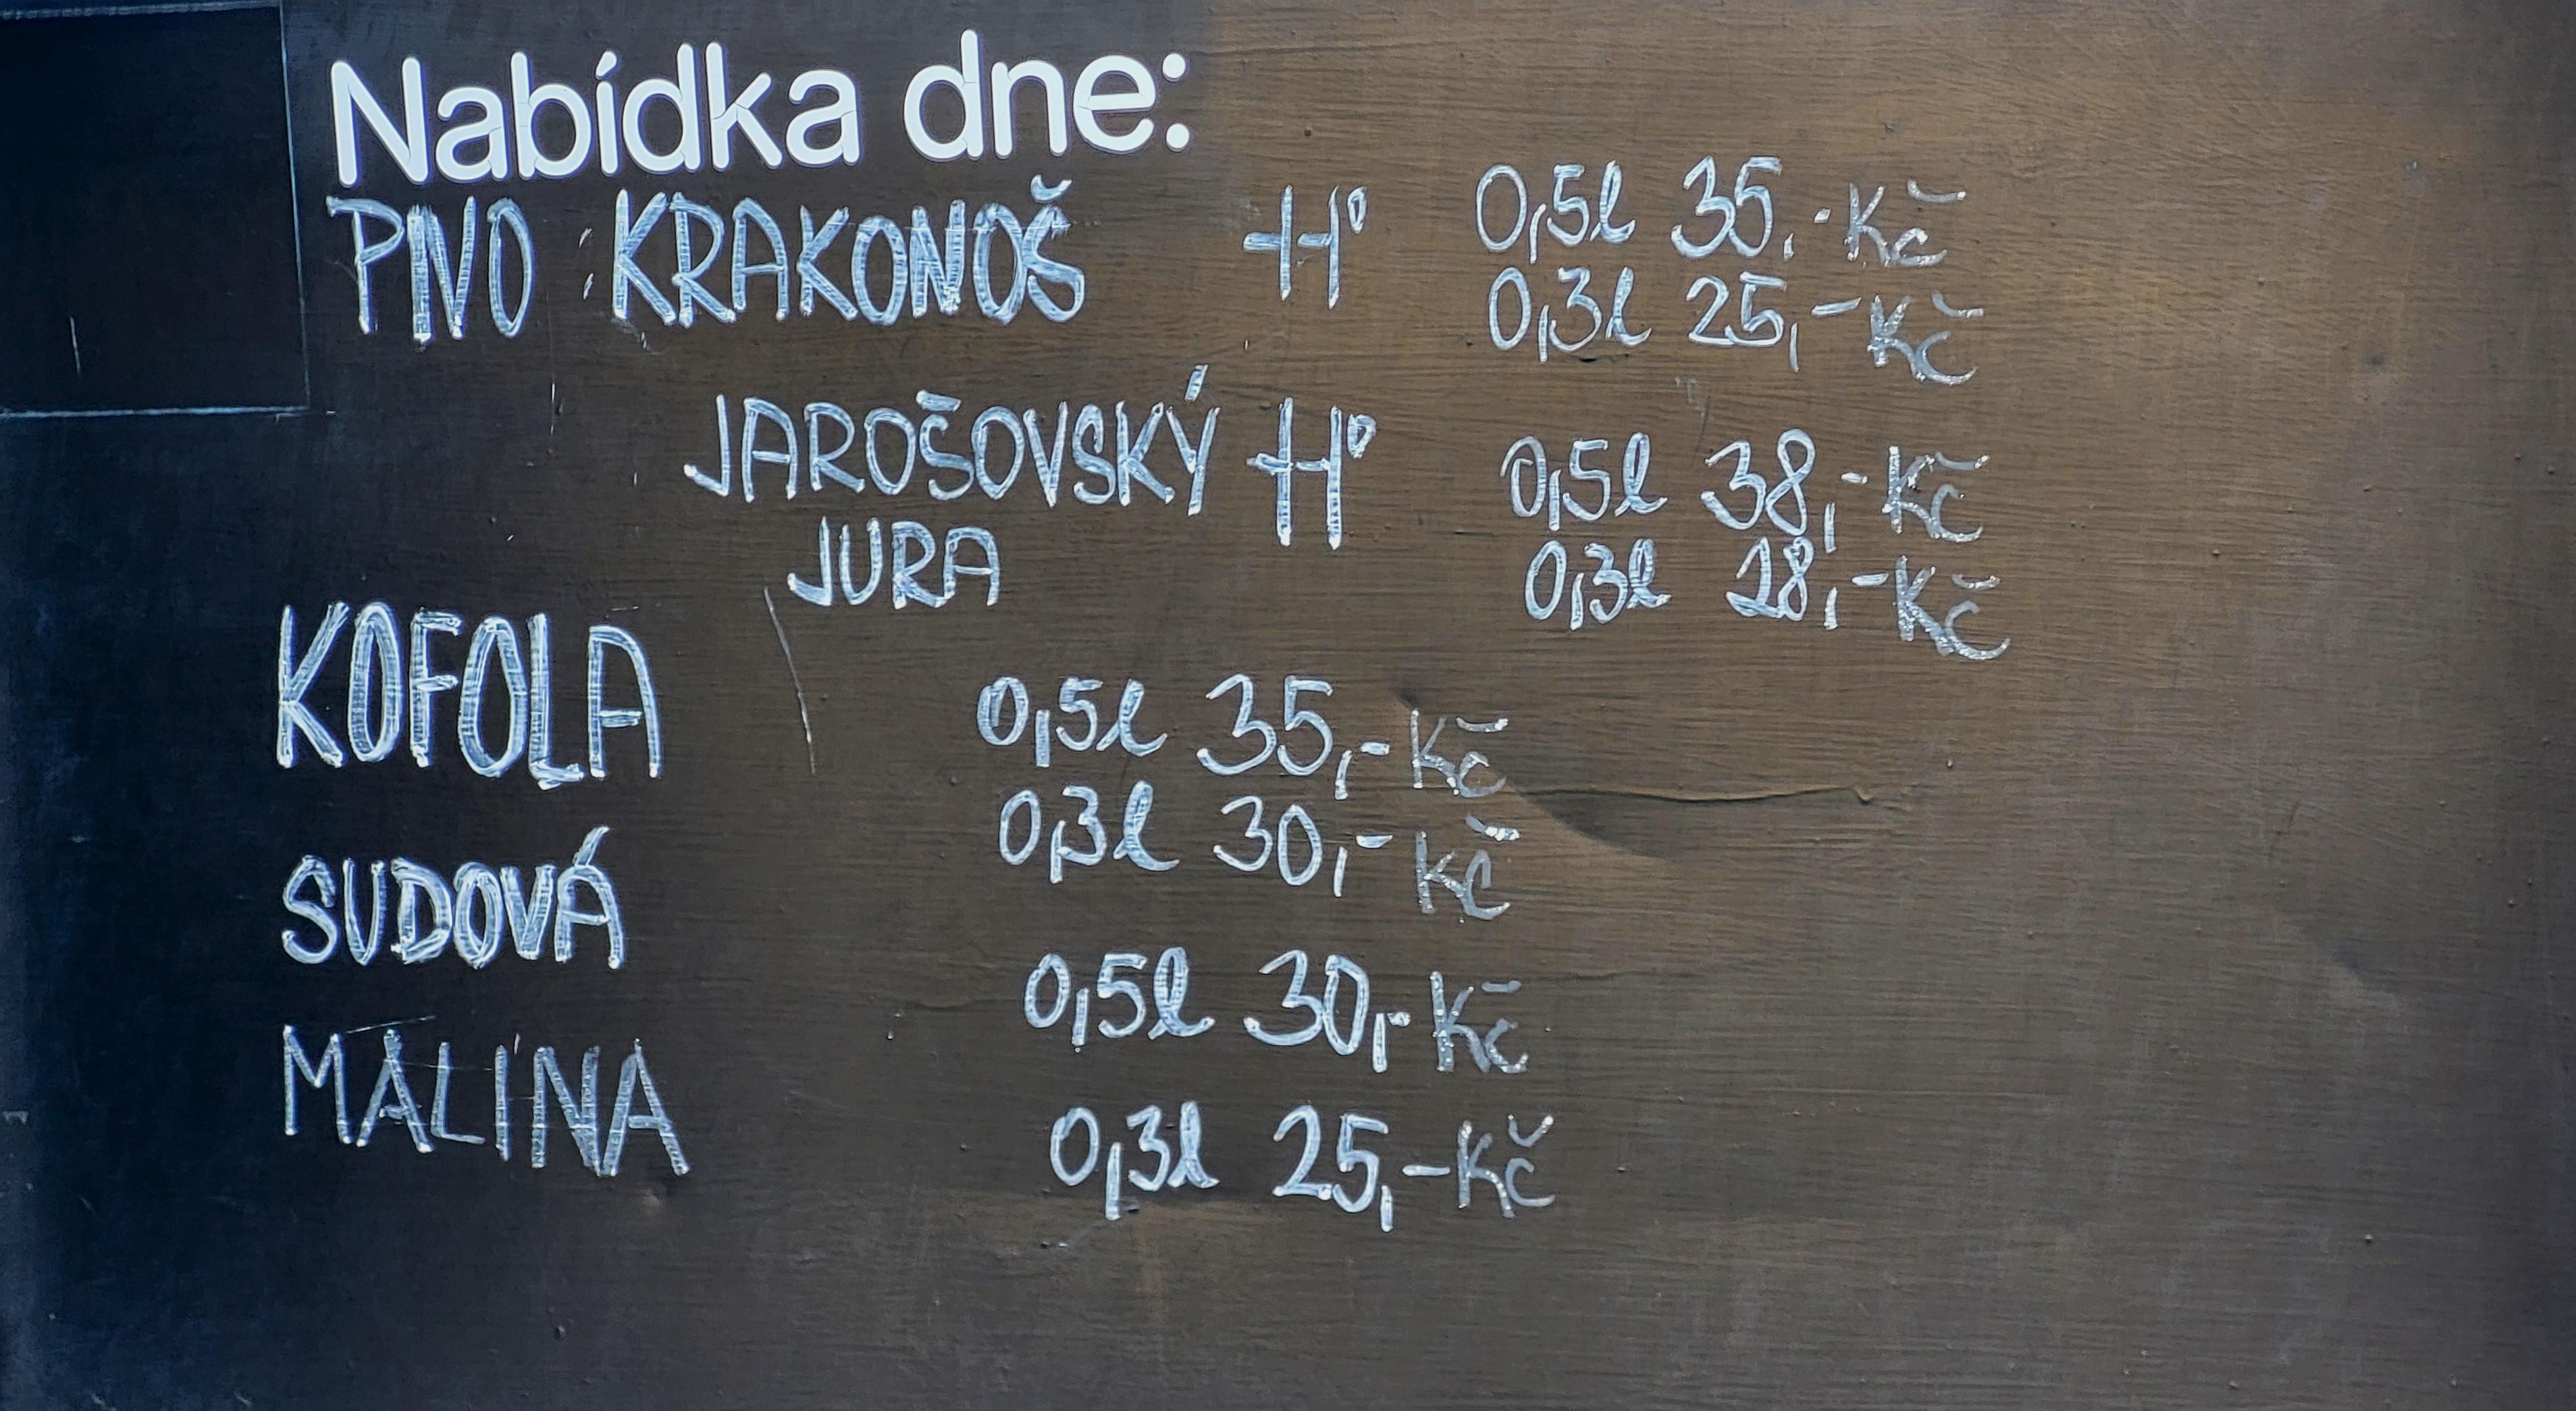 Nabídka dne:
PIVO : KRAKONOŠ 11° 0,5l 35,- Kč
0,3l 25,- Kč
JAROŠOVSKÝ 11° 0,5l 38,- Kč
JURA 0,3l 28,- Kč
KOFOLA 0,5l 35,- Kč
0,3l 30,- Kč
SUDOVÁ
0,5l 30,- Kč
MALINA
0,3l 25,- Kč